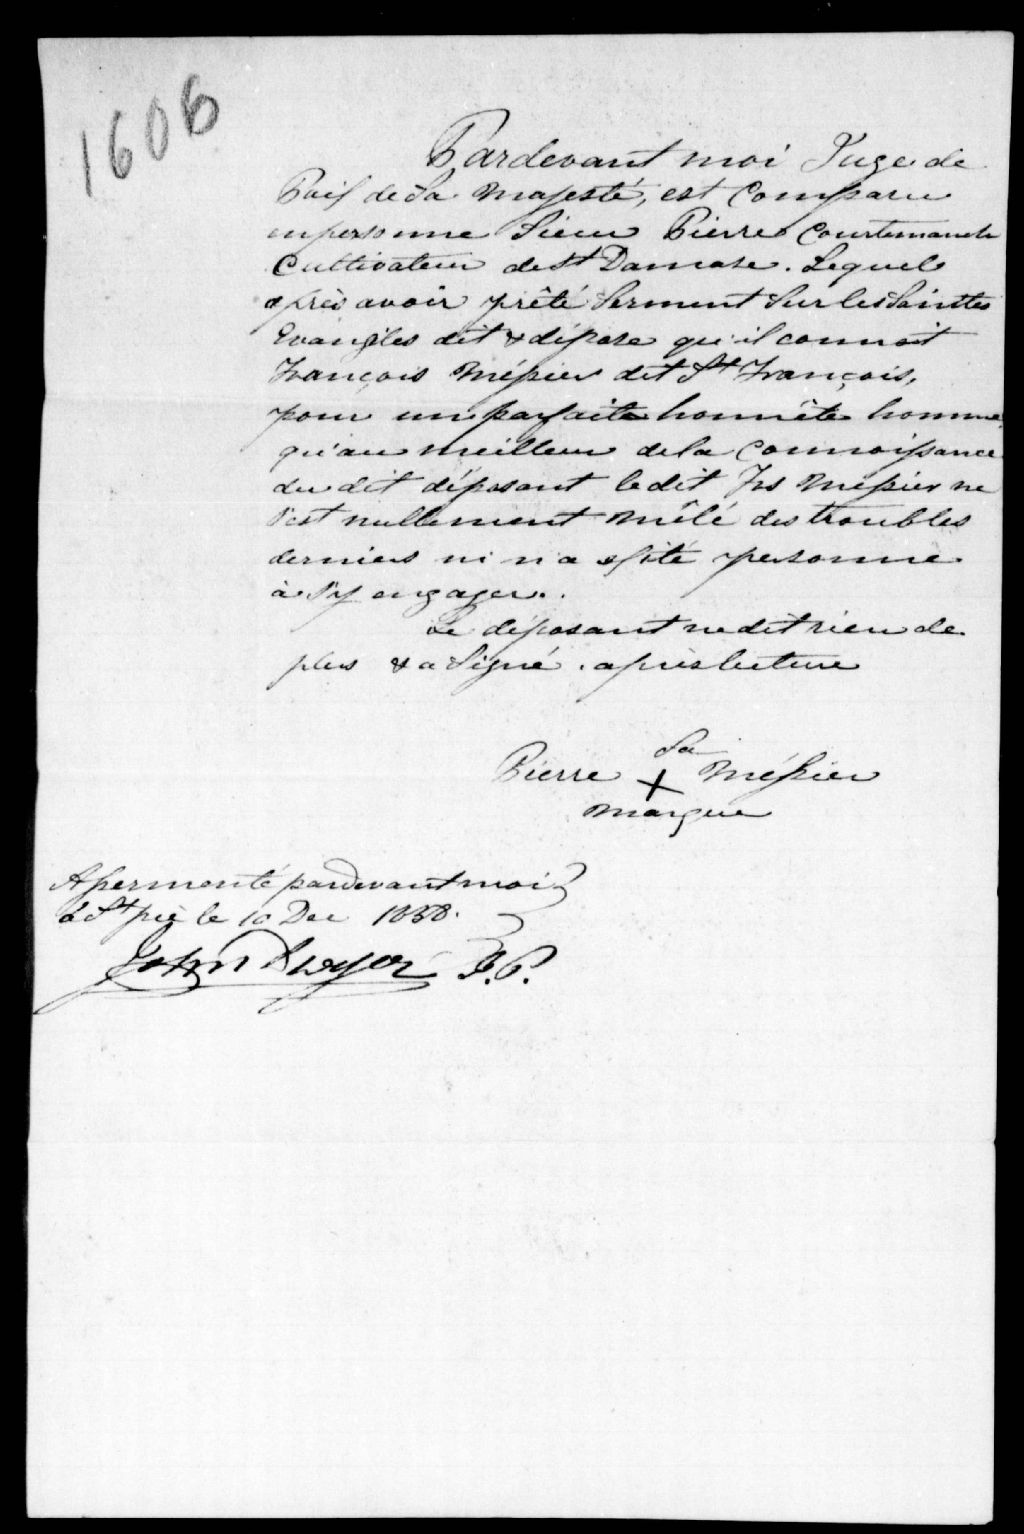 1606
Pardevant moi Juge de
Paix de Sa Majesté, est Comparu
en personne Sieur Pierre Courtemanche
Cultivateur de St Damase. Lequel
après avoir prêté Serment Sur les Saintes
Evangiles dit & dépose qu'il connoit
François Méssier dit St François,
pour un parfaite honnête homme,
qu'au meilleur de la Connoissance
du dit déposant le dit Frs Messier ne
s'est nullement mêlé des troubles
derniers ni n'a exité personne
à s'y engager.
Le déposant ne dit rien de
plus & a Signé. après lecture
Sa
Pierre + Méssier
marque
Assermenté pardevant moi
à St pie le 10 Dec 1838.
John Dwyer J.P.